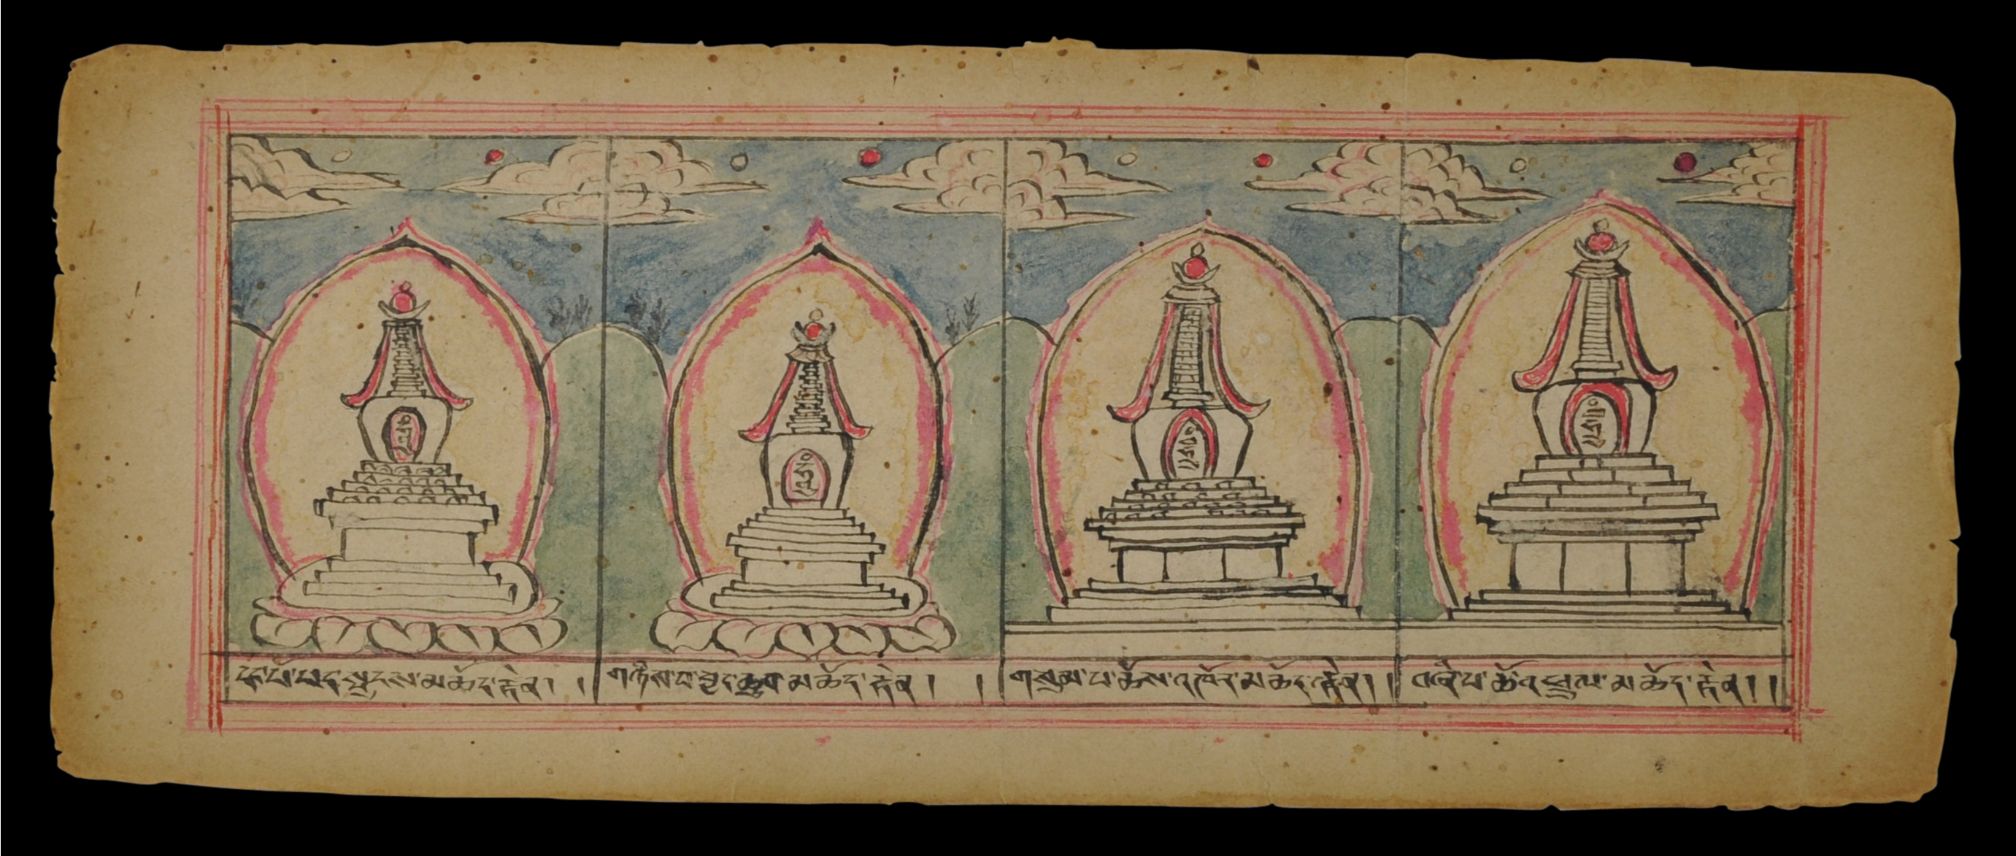 དང་པོ་པད་སྤུངས་མཆོད་རྟེན། །
གཉིས་པ་བྱང་ཆུབ་མཆོད་རྟེན། །
གསུམ་པ་ཆོས་འཁོར་མཆོད་རྟེན། །
བཞི་པ་ཆོ་འཕྲུལ་མཆོད་རྟེན། །